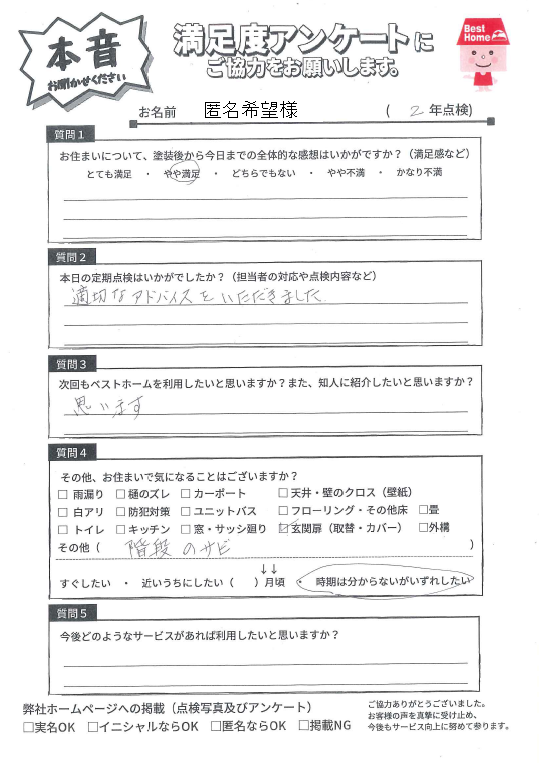 本音
お聞かせください
満足度アンケートに
ご協力をお願いします。
Best
Home
お名前　匿名希望様　（　2　年点検)
質問１
お住まいについて、塗装後から今日までの全体的な感想はいかがですか？（満足感など）
とても満足　・　やや満足　・　どちらでもない　・　やや不満　・　かなり不満
質問２
本日の定期点検はいかがでしたか？（担当者の対応や点検内容など）
適切なアドバイスをいただきました
質問３
次回もベストホームを利用したいと思いますか？また、知人に紹介したいと思いますか？
思います
質問４
その他、お住まいで気になることはございますか？
□ 雨漏り □ 樋のズレ □ カーポート □ 天井・壁のクロス（壁紙）
□ 白アリ □ 防犯対策 □ ユニットバス □ フローリング・その他床 □畳
□ トイレ □ キッチン □ 窓・サッシ廻り ☑ 玄関扉（取替・カバー） □外構
その他（　階段のサビ　）
↓↓
すぐしたい　・　近いうちにしたい（　　）月頃　・　時期は分からないがいずれしたい
質問５
今後どのようなサービスがあれば利用したいと思いますか？
弊社ホームページへの掲載（点検写真及びアンケート）
□実名OK　□イニシャルならOK　□匿名ならOK　□掲載NG
ご協力ありがとうございました。
お客様の声を真摯に受け止め、
今後もサービス向上に努めて参ります。